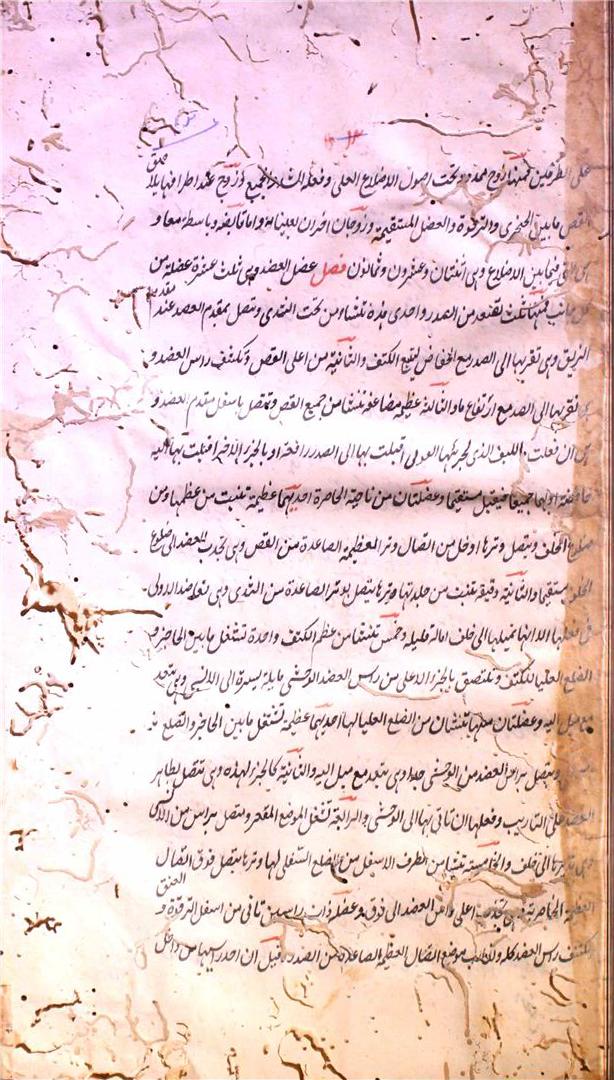 على الطرفين فمنها زوج ممدود تحت اصول الاضلاع العلى وفعله الثلاثة الجميع وزوج عند اطرافها يلاقى
القص ما بين الحنجرى والترقوة والعضل المستقيمة وزوجان اخران يعينانه واما قابضة وباسطة معا و
هى التى فيما بين الاضلاع وهى اثنتان وعشرون وثمانون فصل عضل العضد وهى ثلث عشرة عضلة من
كل جانب فمنها ثلث تصعد من الصدر واحدى هذه تنشاء من تحت الثدى وتتصل بمقدم العضد عند مقدم
الزيق وهى تقربها الى الصدر مع انخفاض يتبع الكتف والثانية من اعلى القص وتكتنف راس العضد و
هى تقربها الى الصدر مع ارتفاع ما والثالثة عظيمة مضاعفة تنشا من جميع القص وتتصل باسفل مقدم العضد و
هى ان فعلت بالليف الذى لجزئها العولى اقبلت بها الى الصدر رافعة او بالجزء الاخر اقبلت بها اليه
خافضة او بهما جميعا فيقبل مستقيما وعضلتان من ناحية الخاصرة احديهما عظيمة تنبت من عظمها ومن
ضلوع الخلف وتتصل وترها ادخل من اتصال وتر العظيمة الصاعدة من القص وهى تجذب العضد الى ضلوع
الخلف مستقيما والثانية دقيقة تنبت من جلدتها وترها يتصل بوتر الصاعدة من الثدى وهى تعاضد الاولى
فى فعلها الا انها تميلها الى خلف امالة قليلة وخمس تنشا من عظم الكتف واحدة تشغل ما بين الحاجز و
الضلع العليا للكتف وتلتصق بالجزء الاعلى من راس العضد الوحشى مايلة يسيرة الى الانسى وهى تبعد
مع ميل اليه وعضلتان منها تنشئان من الضلع العليا لها احديهما عظيمة تشغل ما بين الحاجز والضلع
وتتصل براس العضد من الوحشى جدا وهى تبعد مع ميل اليه والثانية كالجزء لهذه وهى تتصل بظاهر
العضد على التاريب وفعلها ان تاتى بها الى الوحشى والرابعة تشغل الموضع المقعر وتتصل براس من الانسى
وهى تديرها الى خلف والخامسة تنشا من الطرف الاسفل من الضلع السفلى لها وترها يتصل فوق اتصال
العظيمة الخاصرية وهى تجذب اعلى راس العضد الى فوق وعضلة ذات راسين تاتى من اسفل الترقوة و العنق
وتكتنف راس العضد كله وتقارب موضع اتصال العظيمة الصاعدة من الصدر وقيل ان احد راسيها من داخل